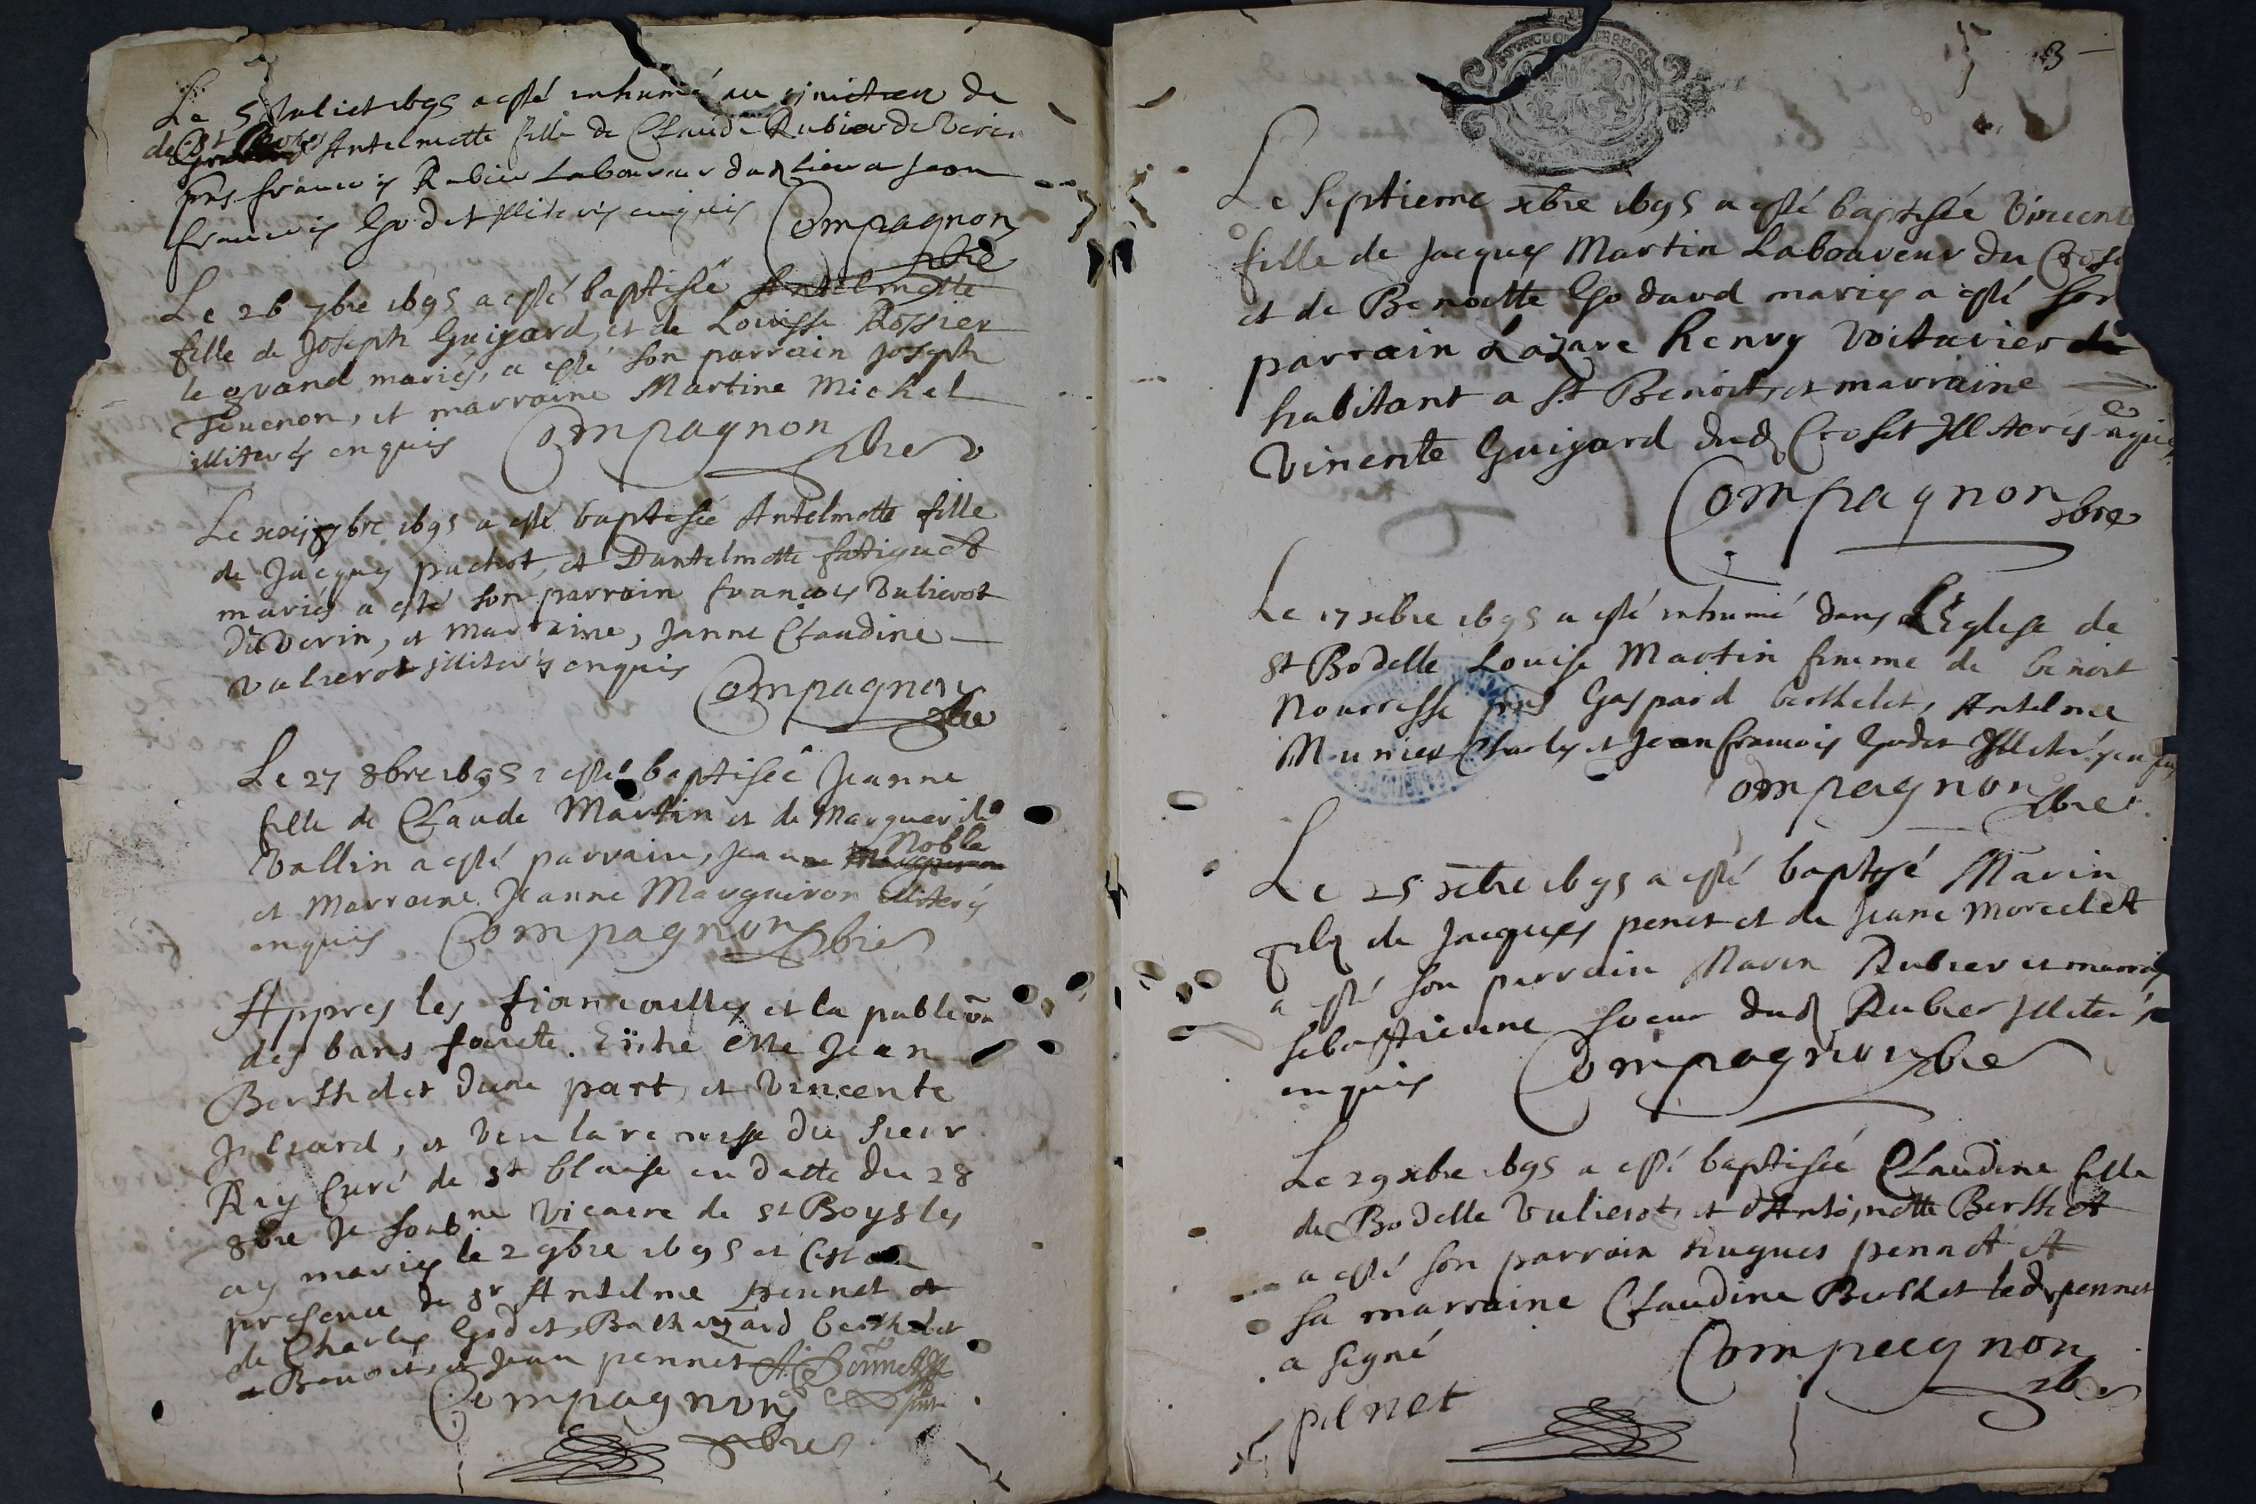 Le 5 Juliet 1695 a esté inhumé au simetiere de
de St Antelmette fille de Claude Rubier de Verin
pns francois Rubier Laboureur dud lieu a Jean
francois Godet illiterés enquis Compagnon
pbre
Le 26 7bre 1695 a esté baptisée Antelmette
fille de Joseph Guigard, et de Louisse Rossier
le grand mariés, a esté son parrain Joseph
et marraine Martine Michel
illiterés enquis Compagnon pbre
Le 8bre 1695 a esté baptisée Antelmette fille
de Jacques pachot, et Dantelmette
mariés a esté son parrain francois Vulierot
du Verin, et marraine, Janne Claudine
Vulierot illiterés enquis
Compagnon
pbre
Le 27 8bre 1695 a esté baptisée Jeanne
fille de Claude Martin et de Marguerite
Vallin a esté parrain, Jean Noble
et Marraine Jeanne Mauguiron illiterés
enquis Compagnon pbre
Appres les fiancailles et la publicon
des bans faicte. Entre Jean
Berthelet dune part, et Vincente
Juliard, et veu la remisse du sieur
Rey Curé de St Blaise en datte du 28
8bre Je soubne Vicaire de St Boys les
ay mariés le 2 9bre 1695 et
presence de sr Antelme pennet et
de Charles Godet, Balthezard berthelet
Benoit, et Jean pennet
Compagnon
pbre
3
Le Septieme xbre 1695 a esté baptisée Vincente
fille de Jacques Martin Laboureur du
et de Benoitte Godard mariés a esté son
parrain Lazare Henry Voiturier
habitant a St Benoit, et marraine
Vincente Guigard dud Croset illiterés enquis
Compagnon
pbre
Le 17 xbre 1695 a esté inhumé dans L'Eglise de
St Bodelle Louise Martin femme de benoit
Nourresse pns Gaspard berthelet, Antelme
Munier Charles et Jean francois Godet illiterés
Compagnon
pbre
Le 25 xbre 1695 a esté baptisé Marin
filz de Jacques penet et de Jeane Morelet
a esté son parrain Marin Rubier et
sebastienne soeur dud Rubier illiterés
enquis Compagnon pbre
Le 29 xbre 1695 a esté baptisée Claudine fille
de Bodelle Vulierot, et dAntoinette Berthet
a esté son parrain hugues pennet et
sa marraine Claudine Berthet led pennet
a signé Compagnon
pbre
penet